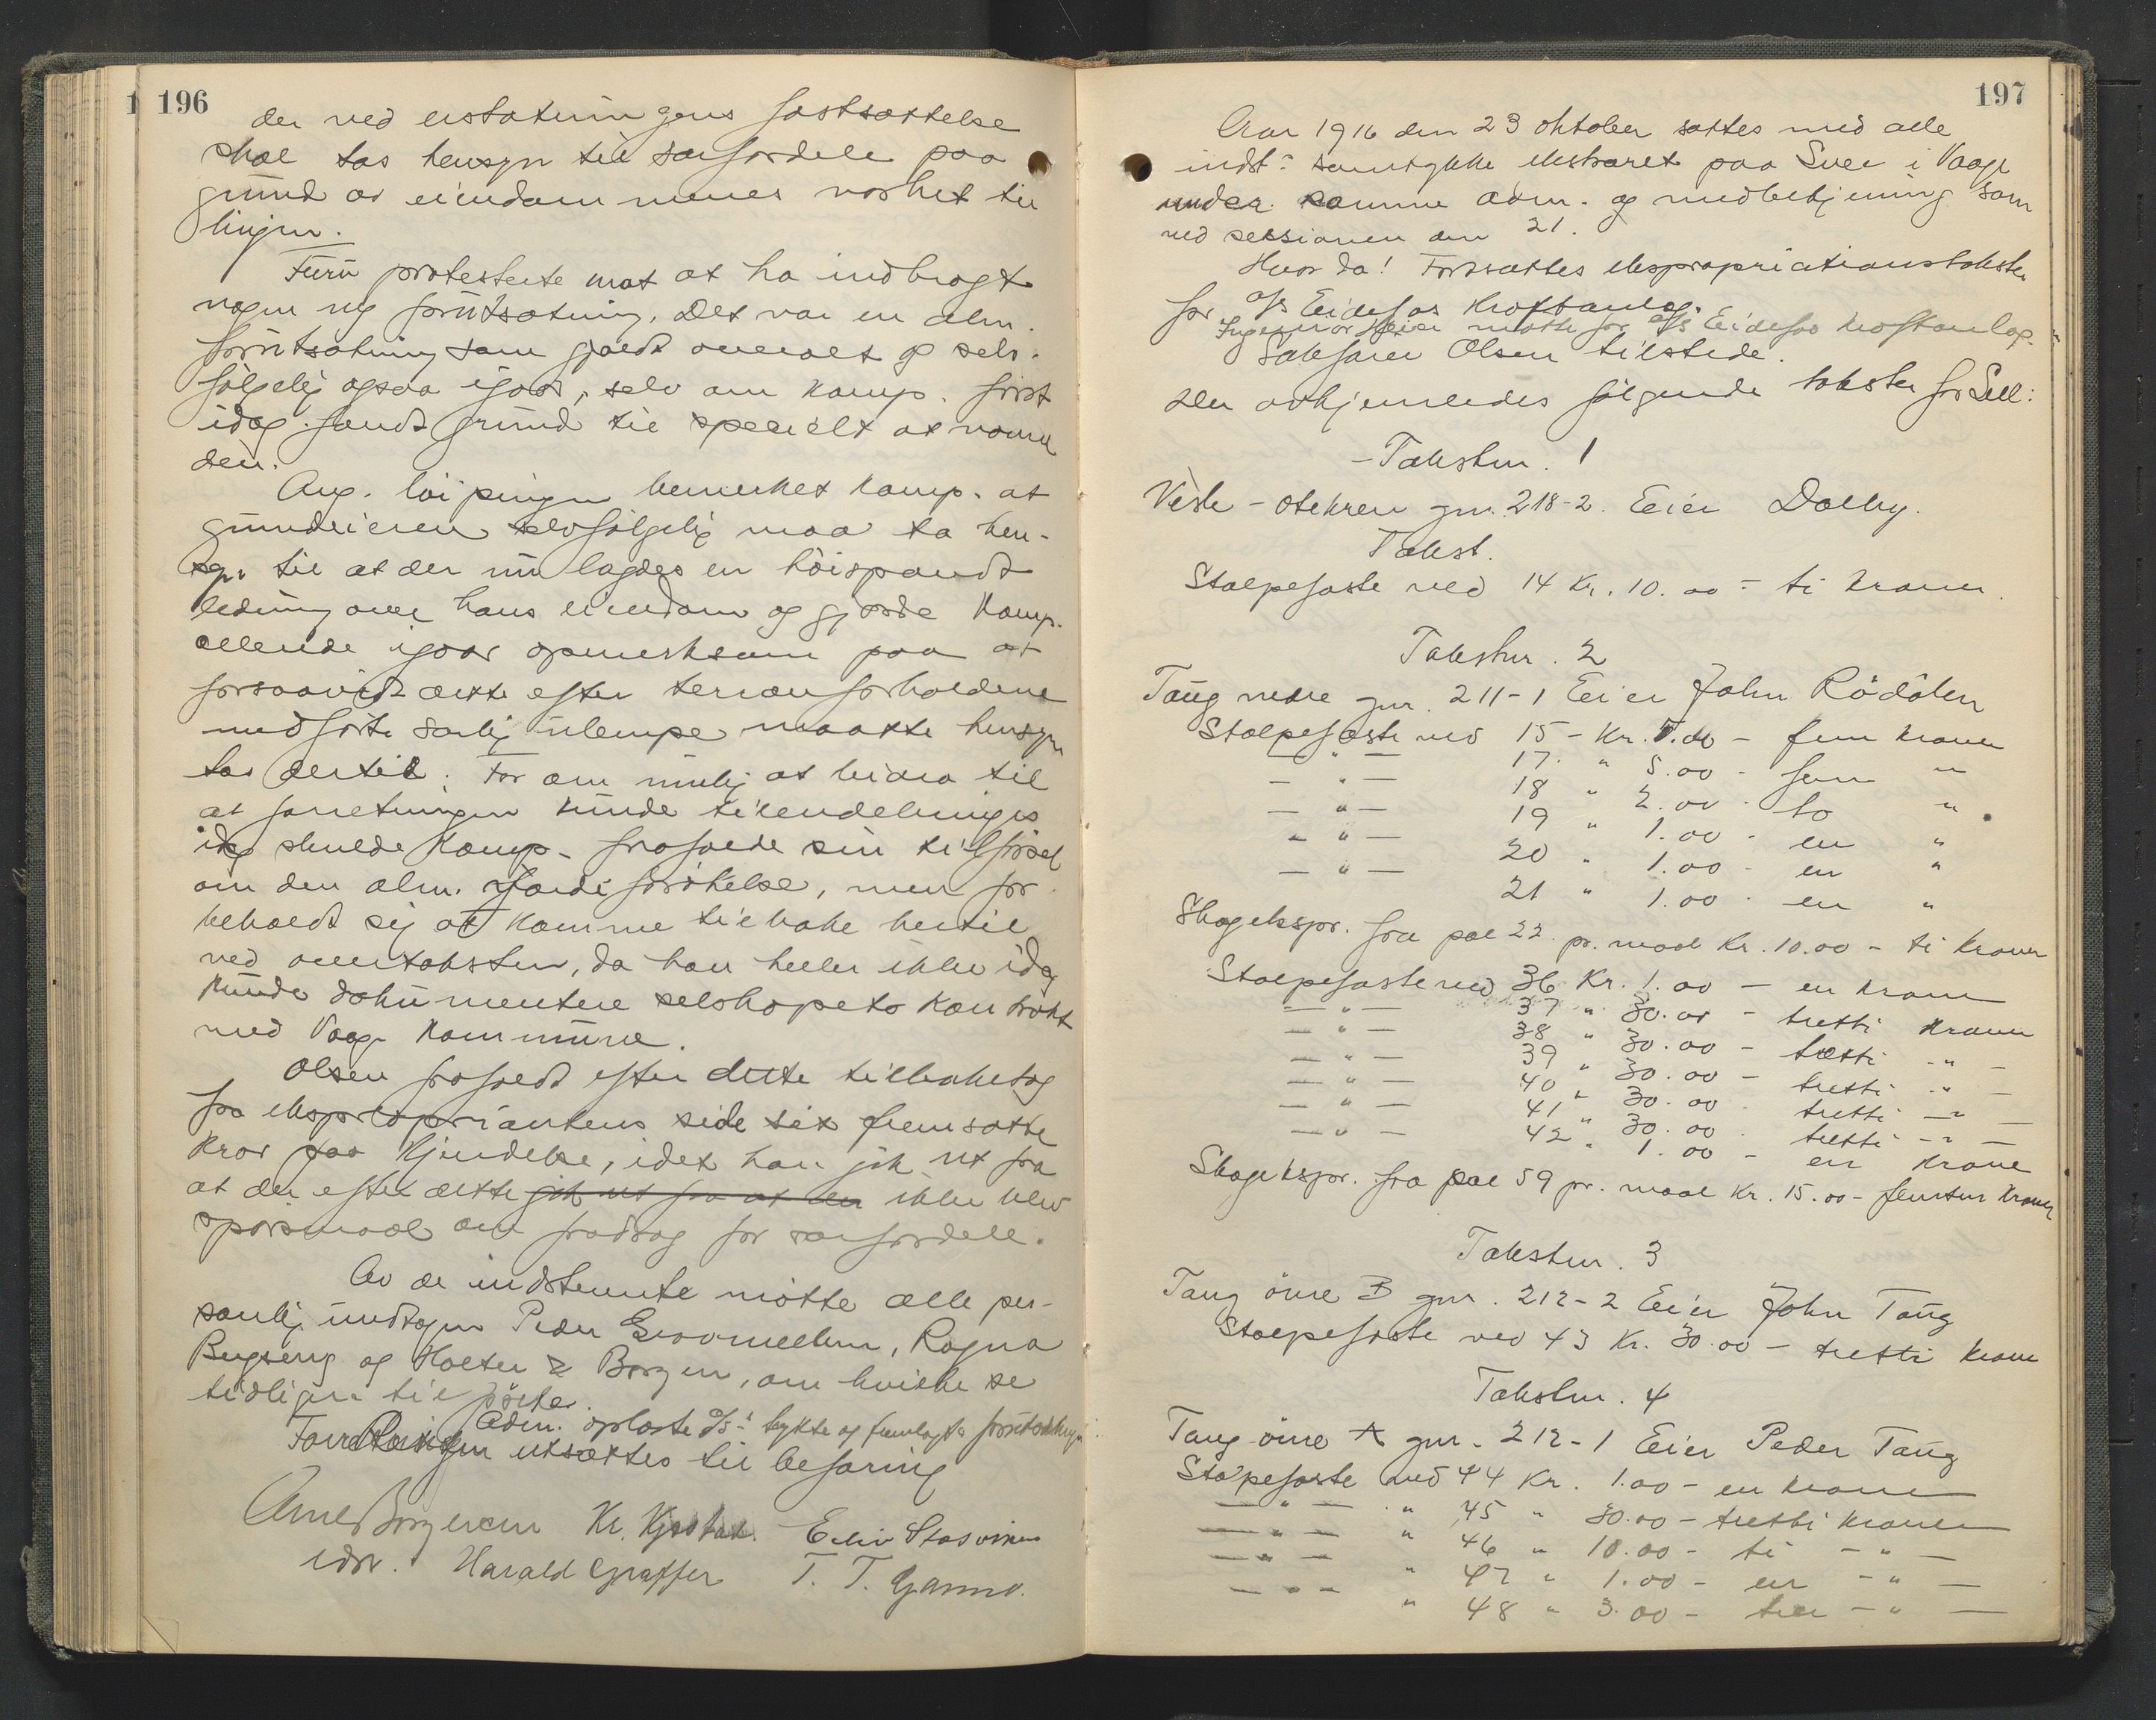 196
der ved erstatningens fastsættelse
skal tas hensyn til særfordele paa
grund av eiendommenes nærhet til
linjen.
Furu protesterte mot at ha indbragt
nogen ny forutsætning. Det var en alm.
forutsætning som gjaldt overalt og selv-
følgelig ogsaa igaar, selv om Kamp. først
idag fandt grund til specielt at nævne
den.
Ang. løipingen bemerket Kamp. at
grundeieren selvfølgelig maa ta hen-
syn til at der nu lagdes en høispændt
ledning over hans eiendom og gjorde Kamp.
allerede igaar opmerksom paa at
forsaavidt dette efter terrænforholdene
medførte særlig ulempe maatte hensyn
tas dertil. For om mulig at bidra til
at forretningen kunde tilendebringes
idag skulde Kamp. frafalde sin tilførsel
om den alm. værdiforøkelse, men for-
beholdt sig at komme tilbake hertil
ved overtaksten, da han heller ikke idag
kunde dokumentere selskapets kontrakt
med Vaage Kommune.
Olsen frafaldt efter dette tilbaketog
fra ekspropriantens side sit fremsatte
krav paa kjendelse, idet han gik ut fra
at der efter dette gik ut fra at der ikke blev
spørsmaal om fradrag for særfordele.
Av de indstevnte møtte alle per-
sonlig undtagen Peder Graavmellem, Ragna
Bugseng og Holter & Borgen, om hvilke se
tidligere tilførsler.
Adm. oplæste a/s' trykte og fremlagte forutsætninger.
Forretningen utsættes til befaring
Arne Borgersen Kr. Kjæstad Eiliv Stasviken
edsv. Harald Graffer T. T. Garmo.
197
Aar 1916 den 23 oktober sattes med alle
indst. samtykke ekstraret paa Svee i Vaage
under samme adm. og medbetjening som
ved sessionen den 21.
Hvor da! Fortsættes ekspropriationstaksten
for a/s Eidefos Kraftanlæg.
Ingeniør Heier møtte for a/s Eidefos Kraftanlæg.
Sakfører Olsen tilstede.
Der avhjemledes følgende takster for Sell:
- Takstnr. 1
Vesle-Otekren gnr. 218-2. Eier Dalby.
Takst.
Stolpefæste ved 14 Kr. 10.00 - ti kroner.
Takstnr. 2
Taug nedre gnr. 211-1 Eier John Rødølen
Stolpefæste ved 15 - Kr. 5.00 - fem kroner
— " — 17. " 5.00 - fem "
— " — 18 " 2.00 - to "
— " — 19 " 1.00 - en "
— " — 20 " 1.00 - en "
— " — 21 " 1.00 - en "
Skogekspr. fra pæl 22 pr. maal Kr. 10.00 - ti kroner
Stolpefæste ved 36 Kr. 1.00 - en krone
— " — 37 " 30.00 - tretti kroner
— " — 38 " 30.00 - tretti - " -
— " — 39 " 30.00 - tretti - " -
— " — 40 " 30.00 - tretti - " -
— " — 41 " 30.00 - tretti - " -
— " — 42 " 1.00 - en krone
Skogekspr. fra pæl 59 pr. maal Kr. 15.00 - femten kroner
Takstnr. 3
Taug øvre B gnr. 212-2 Eier John Taug
Stolpefæste ved 43 Kr. 30.00 - tretti krone
Takstnr. 4
Taug øvre A gnr. 212-1 Eier Peder Taug
Stolpefæste ved 44 Kr. 1.00 - en krone
— " — " 45 " 30.00 - tretti kroner
— " — " 46 " 10.00 - ti - " -
— " — " 47 " 1.00 - en - " -
— " — " 48 " 3.00 - tre - " -